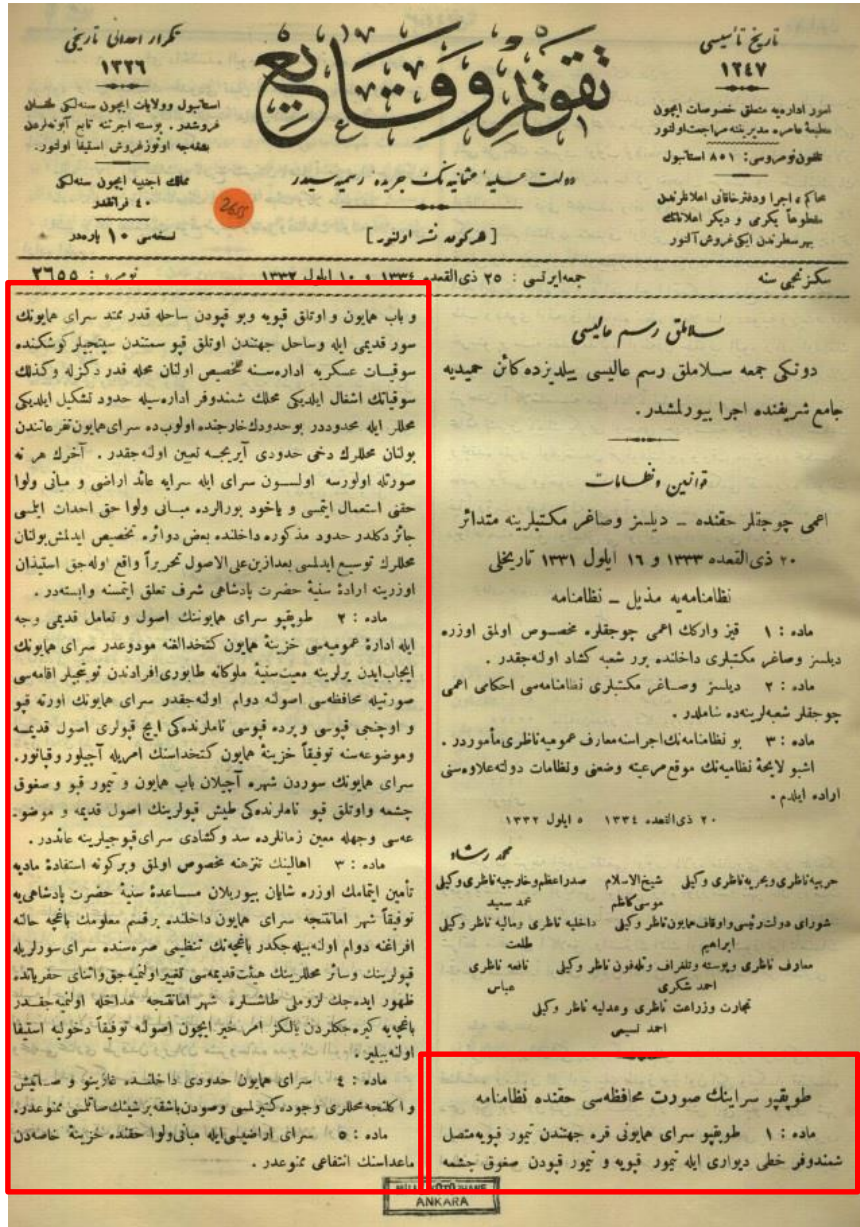 تكرار احداثی تاریخی
١٣٢٦
استانبول وولایات ایچون سنه‌لكی
غروشدر . پوسته اجرتنه تابع آبونه‌لردن
اوتوزغروش استیفا اولنور.
ممالك اجنبیه ایچون سنه‌لكی
٤٠ فرانقدر
نسخه‌سی ١٠ پاره‌در
2655
تقویم وقایع
دولت علیهٔ عثمانیه‌نك جریدهٔ رسمیه‌سیدر
[ هركون نشر اولنور ]
تاریخ تأسیسی
١٢٤٧
امور اداریه متعلق خصوصات ایچون
مطبعهٔ عامره مدیریتنه مراجعت‌اولنور
تلفون‌نومروسی: ٨٥١ استانبول
محاكم ، اجرا ودفترخاقانی اعلاناتندن
مقطوعاً یكرمی و دیكر اعلاناتك
بهرسطرندن ایكی غروش آلنور
سكزنجی سنه
جمعه‌ایرتسی : ٢٥ ذی‌القعده ١٣٣٤ و ١٠ ایلول ١٣٣٢
نومرو : ٢٦٥٥
سلاملق رسم عالیسی
دونكی جمعه سلاملق رسم عالیسی ییلدیزده كائن حمیدیه
جامع شریفنده اجرا بیورلمشدر.
قوانین ونظامات
اعمی چوجقلر حقنده ــ دیلسز وصاغر مكتبلرینه متدائر
٢٠ ذی‌القعده ١٣٣٣ و ١٦ ایلول ١٣٣١ تاریخلی
نظامنامه‌یه مذیل ــ نظامنامه
ماده : ١ قیز واركك اعمی چوجقلره مخصوص اولمق اوزره
دیلسز وصاغر مكتبلری داخلنده برر شعبه كشاد اولنه‌جقدر .
ماده : ٢ دیلسز وصاغر مكتبلری نظامنامه‌سی احكامی اعمی
چوجقلر شعبه‌لرینه‌ده شاملدر .
ماده : ٣ بو نظامنامه‌نك‌اجراسنه‌معارف عمومیه‌ناظری‌مأموردر .
اشبو لایحهٔ نظامیه‌نك موقع مرعیته وضعنی ونظامات دولته‌علاوه‌سنی
اراده ایلدم .
٢٠ ذی‌القعده ١٣٣٤ ٥ ایلول ١٣٣٢
محمد رشاد
حربیه‌ناظری‌وبحریه‌ناظری وكیلی شیخ‌الاسلام صدراعظم‌وخارجیه‌ناظری‌وكیلی
موسی كاظم محمد سعید
شورای دولت‌رئیسی‌واوقاف‌همایون‌ناظر وكیلی داخلیه ناظری ومالیه ناظر وكیلی
ابراهیم طلعت
معارف ناظری وپوسته وتلغراف وتلفون ناظر وكیلی نافعه ناظری
احمد شكری عباس
تجارت وزراعت ناظری وعدلیه ناظر وكیلی
احمد نسیمی
طوپقپو سراینك صورت محافظه‌سی حقنده نظامنامه
ماده : ١ طوپقپو سرای همایونی قره جهتندن تیمور قپویه‌متصل
شمندوفر خطی دیواری ایله تیمور قپویه و تیمور قپودن صغوق چشمه
و باب همایون و اوتلق قپویه وبو قپودن ساحله قدر ممتد سرای همایونك
سور قدیمی ایله وساحل جهتندن اوتلق قپو سمتندن سپتجیلر كوشكنده
سوقیات عسكریه اداره‌سنه تخصیص اولنان محله قدر دكزله وكذلك
سوقیاتك اشغال ایلدیكی محلك شمندوفر اداره‌سیله حدود تشكیل ایلدیكی
محللر ایله محدوددر بوحدودك‌خارجنده اولوب‌ده سرای‌همایون‌تفرعاتندن
بولنان محللرك دخی حدودی آیریجه تعیین اولنه‌جقدر . آخرك هر نه
صورتله اولورسه اولسون سرای ایله سرایه عائد اراضی و مبانی ولوا
حقنی استعمال ایتمسی و یاخود بورالرده مبانی ولوا حق احداث ایلمسی
جائز دكلدر حدود مذكوره داخلنده بعض دوائره تخصیص ایدلمش‌بولنان
محللرك توسیع ایدلمسی بعدازین‌علی‌الاصول تحریراً واقع اوله‌جق استیذان
اوزرینه ارادهٔ سنیهٔ حضرت پادشاهی شرف تعلق ایتمسنه وابسته‌در .
ماده : ٢ طوپقپو سرای همایوننك اصول و تعامل قدیمی وجه
ایله ادارهٔ عمومیه‌سی خزینهٔ همایون كتخدالغنه مودوعدر سرای همایونك
ایجاب‌ایدن یرلرینه معیت‌سنیهٔ ملوكانه طابوری‌افرادندن نوبتجیلر اقامه‌سی
صورتیله محافظه‌سی اصولنه دوام اولنه‌جقدر سرای همایونك اورته قپو
و اوچنجی قپوسی و پرده قپوسی ناملرنده‌كی ایچ قپولری اصول قدیمه
وموضوعه‌سنه توفیقاً خزینهٔ همایون كتخداسنك امریله آچیلور وقپانور.
سرای همایونك سوردن شهره آچیلان باب همایون و تیمور قپو و صغوق
چشمه واوتلق قپو ناملرنده‌كی طیش قپولرینك اصول قدیمه و موضو.
عه‌سی وجهله معین زمانلرده سد وكشادی سرای‌قپوجیلرینه عائددر .
ماده : ٣ اهالینك تنزهنه مخصوص اولمق وبركونه استفادهٔ مادیه
تأمین ایتمامك اوزره شایان بیوریلان مساعدهٔ سنیهٔ حضرت پادشاهی‌یه
توفیقاً شهر امانتنجه سرای همایون داخلنده برقسم معلومك باغچه حالنه
افراغنه دوام اولنه‌بیله‌جكدر باغچه‌نك تنظیمی صره‌سنده سرای‌سورلریله
قپولرینك وسائر محللرینك هیئت‌قدیمه‌سی تغییراولنمیه‌جق‌واثنای حفریاتده
ظهور ایده‌جك لزوملی طاشلره شهر امانتنجه مداخله اولنمیه‌جقدر
باغچه‌یه كیره‌جكلردن یالكز امر خیر ایچون اصولنه توفیقاً دخولیه استیفا
اولنه‌بیلیر .
ماده : ٤ سرای همایون حدودی داخلنده غازینو و صاتیش
و اكلنجه‌محللری وجوده‌كتیرلمسی وصودن‌باشقه‌برشیئك‌صاتلمسی ممنوعدر.
ماده : ٥ سرای اراضیسی‌ایله مبانی‌ولوا حقنده خزینهٔ خاصه‌دن
ماعداسنك انتفاعی ممنوعدر .
ANKARA